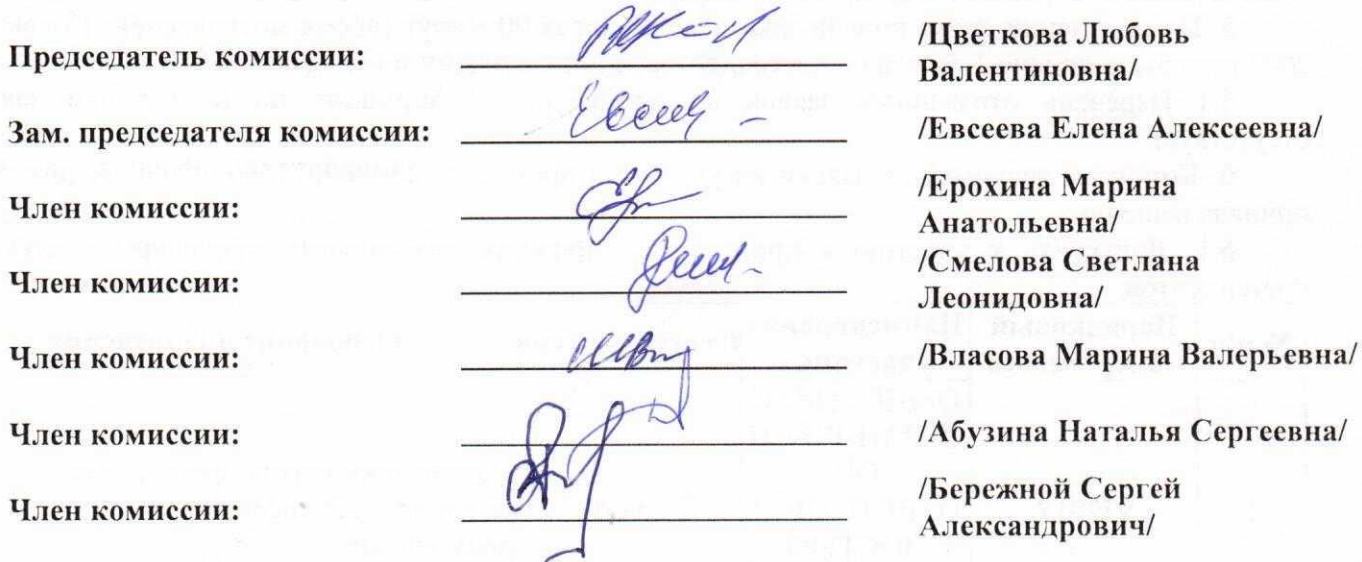 Председатель комиссии: /Цветкова Любовь
Валентиновна/
Зам. председателя комиссии: /Евсеева Елена Алексеевна/
Член комиссии: /Ерохина Марина
Анатольевна/
Член комиссии: /Смелова Светлана
Леонидовна/
Член комиссии: /Власова Марина Валерьевна/
Член комиссии: /Абузина Наталья Сергеевна/
Член комиссии: /Бережной Сергей
Александрович/